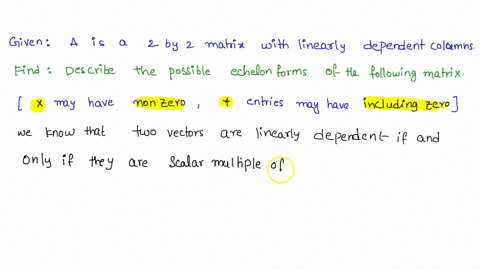 Given: A is a 2 by 2 matrix with linearly dependent columns.
Find: Describe the possible echelon forms of the following matrix.
[ x may have non zero, + entries may have including zero ]
we know that two vectors are linearly dependent if and
only if they are scalar multiple of